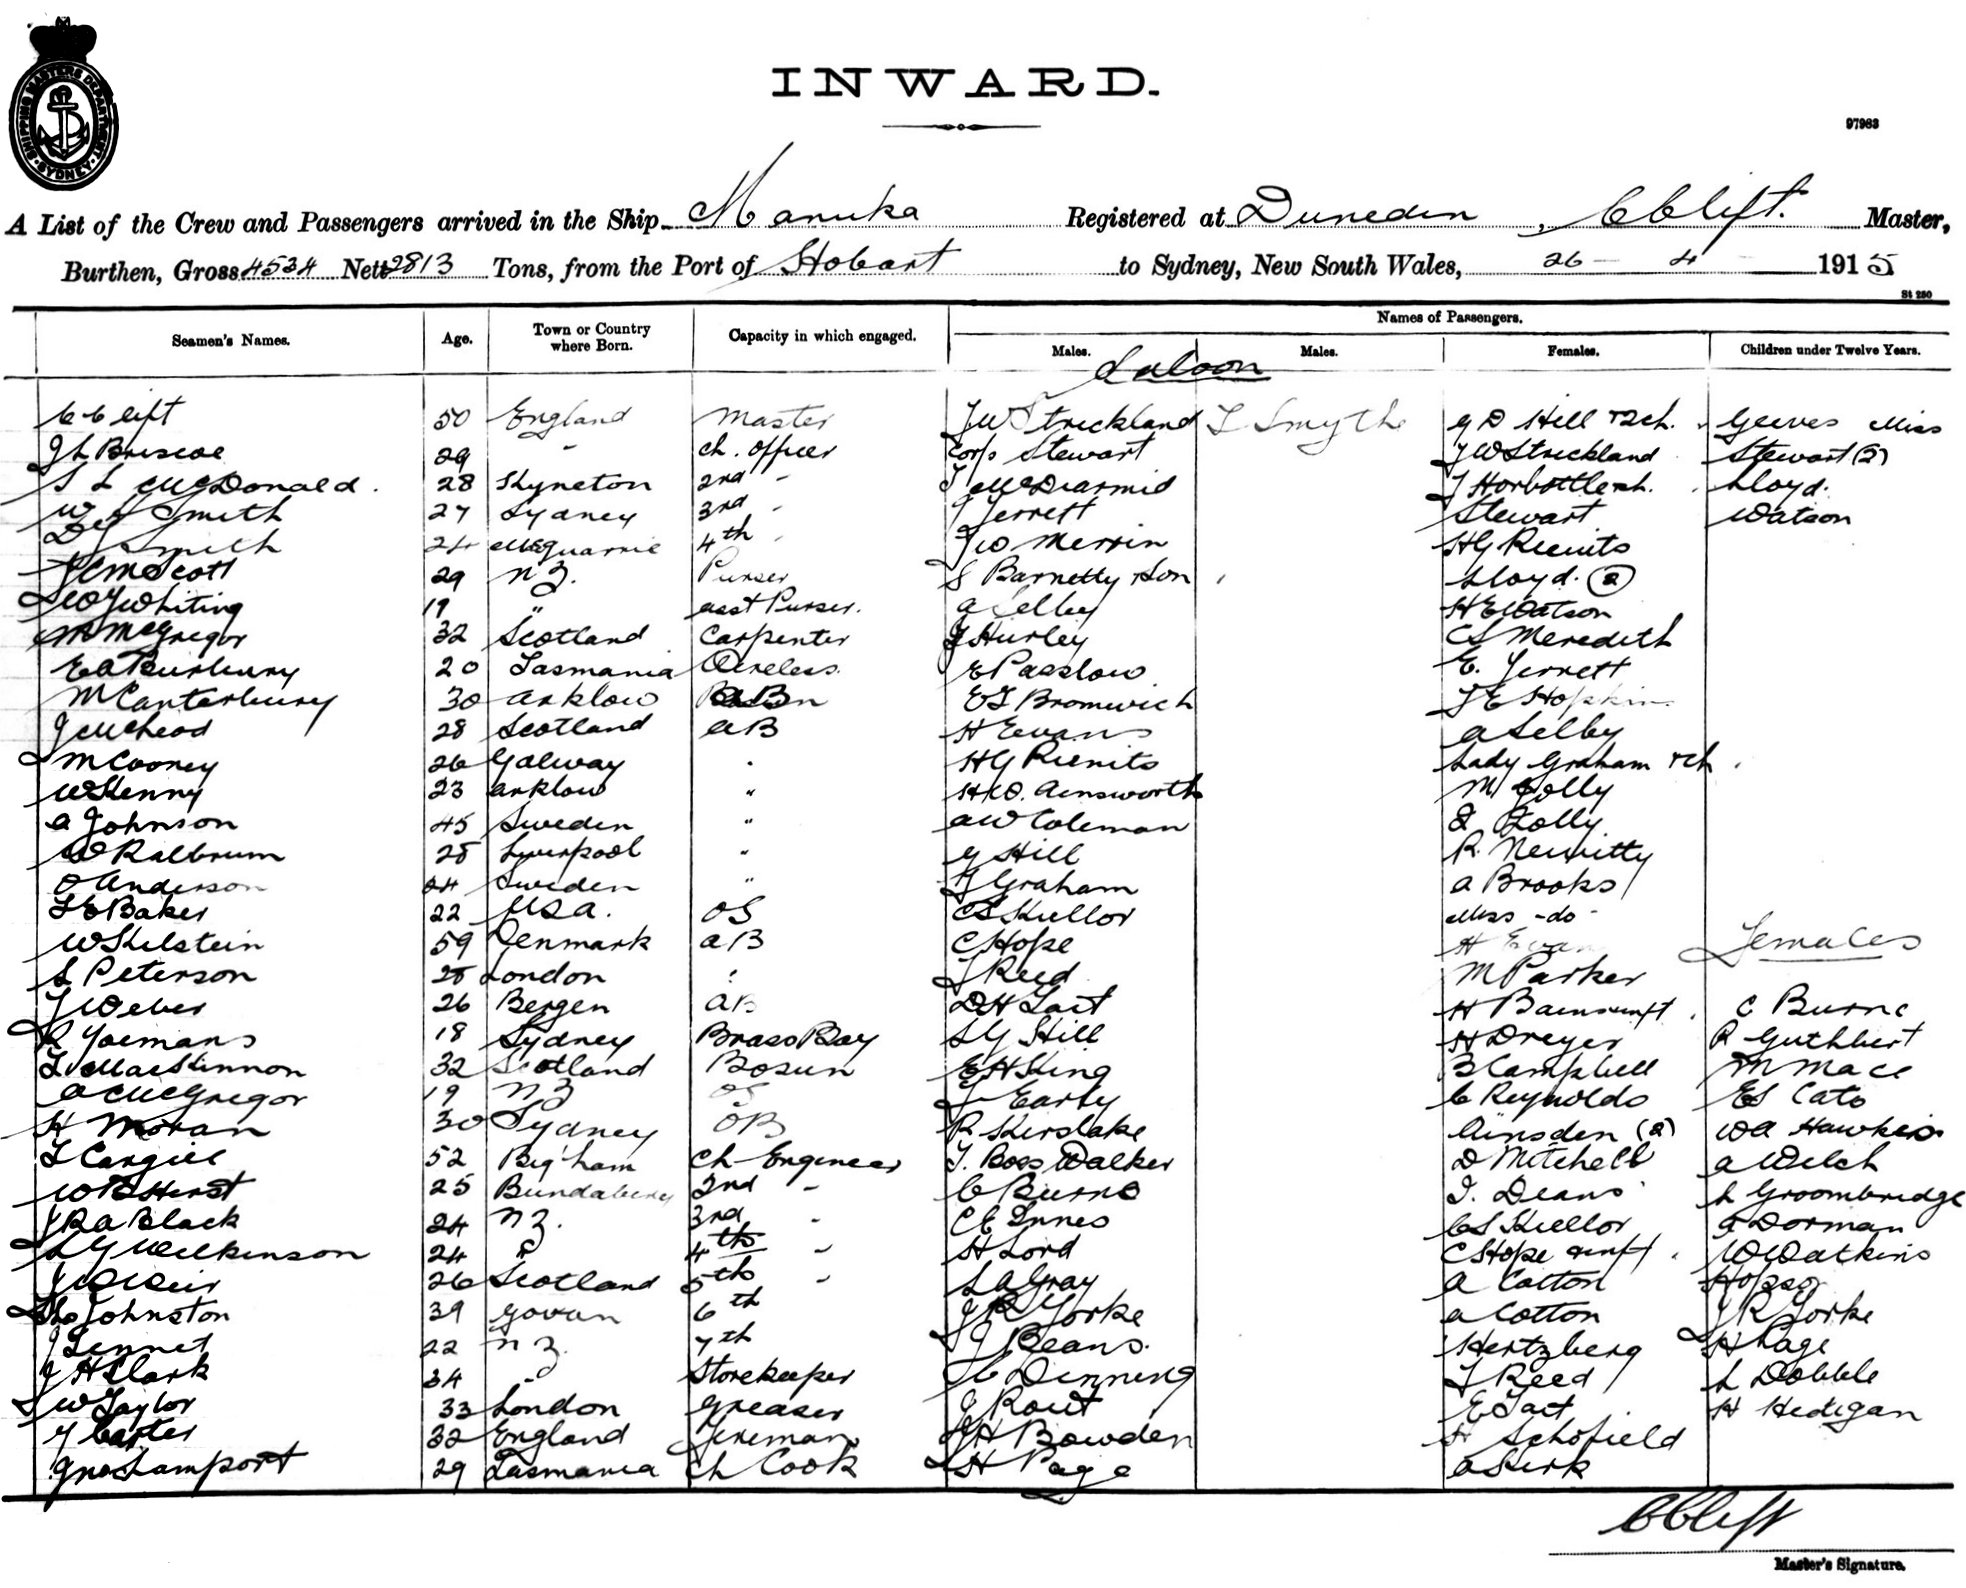 SHIPPING MASTERS DEPARTMENT · SYDNEY ·
INWARD.
97983
A List of the Crew and Passengers arrived in the Ship Manuka Registered at Dunedin, C Clift. Master,
Burthen, Gross 4534 Nett 2813 Tons, from the Port of Hobart to Sydney, New South Wales, 26 - 4 1915
St 250
Seamen's Names. Age. Town or Country where Born. Capacity in which engaged. Names of Passengers.
Males. Males. Females. Children under Twelve Years.
Saloon
C Clift 50 England Master J W Strickland T Smythe G D Hill & 2ch. Geeves Miss
J L Briscoe 29 " ch. Officer Corp Stewart J W Strickland Stewart (2)
S L McDonald. 28 Kyneton 2nd " J McDiarmid J Horbottle & ch. Lloyd.
W J Smith 27 Sydney 3rd " J Jerrett Stewart Watson
D J Smith 24 McQuarrie 4th " J W Merrin H G Rienits
J C M Scott 29 N Z. Purser S Barnetty & Son Lloyd. (2)
W J Whiting 19 " asst Purser. A Selby H E Watson
M McGregor 32 Scotland Carpenter J Hurley C S Meredith
E A Burbury 20 Tasmania Wireless. E Passlow E. Jerrett
M Canterbury 30 Arklow E T Bromwich T E Hopkin
J McLeod 28 Scotland AB H Evans A Selby
M Cooney 26 Galway " H G Rienits Lady Graham & ch.
W Kenny 23 Arklow " H W. Ainsworth M Jolly
A Johnson 45 Sweden " A W Coleman I Jolly
W Ralbrum 28 Liverpool " G Hill R. Newitty
O Anderson 24 Sweden " J Graham A Brooks
T E Baker 22 U S A. OS C S Kellor Miss -do-
W Kelstein 59 Denmark AB C Hope H Evan Females
S Peterson 28 London " J Reed M Parker
J Weber 26 Bergen AB D H Tait H C Burne
R Yoemans 18 Sydney Brass Boy S G Hill H Dreyer R Guthbert
L MacKinnon 32 Scotland Bosun E H King B Campbell M Mace
A McGregor 19 N Z OS J Early C Reynolds E S Cato
H Moran 30 Sydney OB R Kerslake Ainsden (2) W A Hawkins
T Cargill 52 Big'ham Ch Engineer T. Boss Walker D Mitchell A Welch
W B Hirst 25 Bundaberg 2nd " C Burns I. Deans L Groombridge
J R A Black 24 N Z. 3rd " C E Innes C S Kellor F Dorman
L G Wilkinson 24 " 4th " H Lord C Hope & inft. W Watkins
J W Weir 26 Scotland 5th " L A Gray A Catton
Thos Johnston 39 Govan 6th J R Yorke A Cotton J R Yorke
J Tennet 22 N Z. 7th J Beans. Hertzberg H Page
J H Clark 34 " Storekeeper C Dinning J Reed L Dobble
W Taylor 33 London Greaser J Rout E Tait H Hedigan
G Carter 32 England Fireman J H Bowden H Schofield
Jno Lamport 29 Tasmania Ch Cook H Page A Kirk
C Clift
Master's Signature.